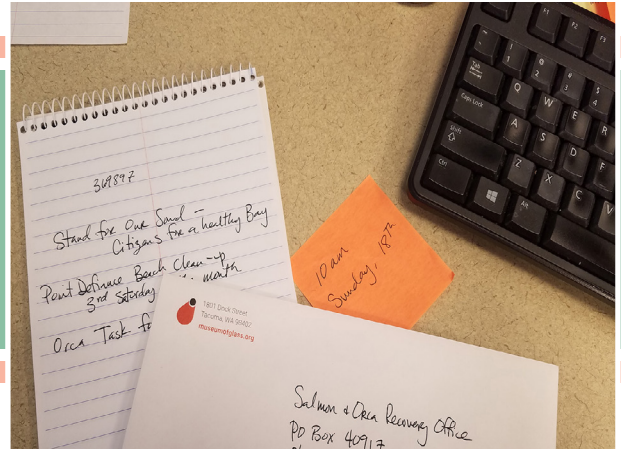 369897
Stand for Our Sound –
Citizens for a healthy Bay
Point Defiance Beach Clean-up
3rd Saturday month
Orca Task
10 am
Sunday, 18th
1801 Dock Street
Tacoma, WA 98402
museumofglass.org
Salmon & Orca Recovery Office
PO Box 40917
F1 F2 F3
~ ` ! 1 @ 2 # 3 $ 4
Tab Q W E R
Caps Lock A S D F
Shift Z X C V
Ctrl Alt